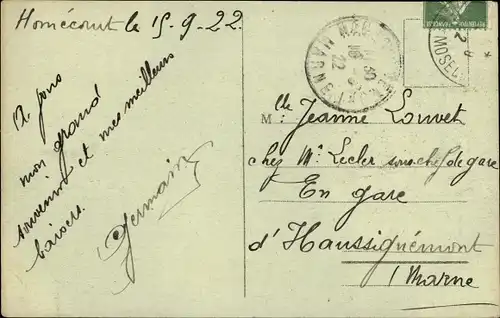 Homécourt le 15-9-22
A vous
mon grand
souvenir et mes meilleurs
baisers.
Germain
M lle Jeanne Louvet
chez Mr Lecler sous chef de gare
En gare
d'Haussignémont
Marne